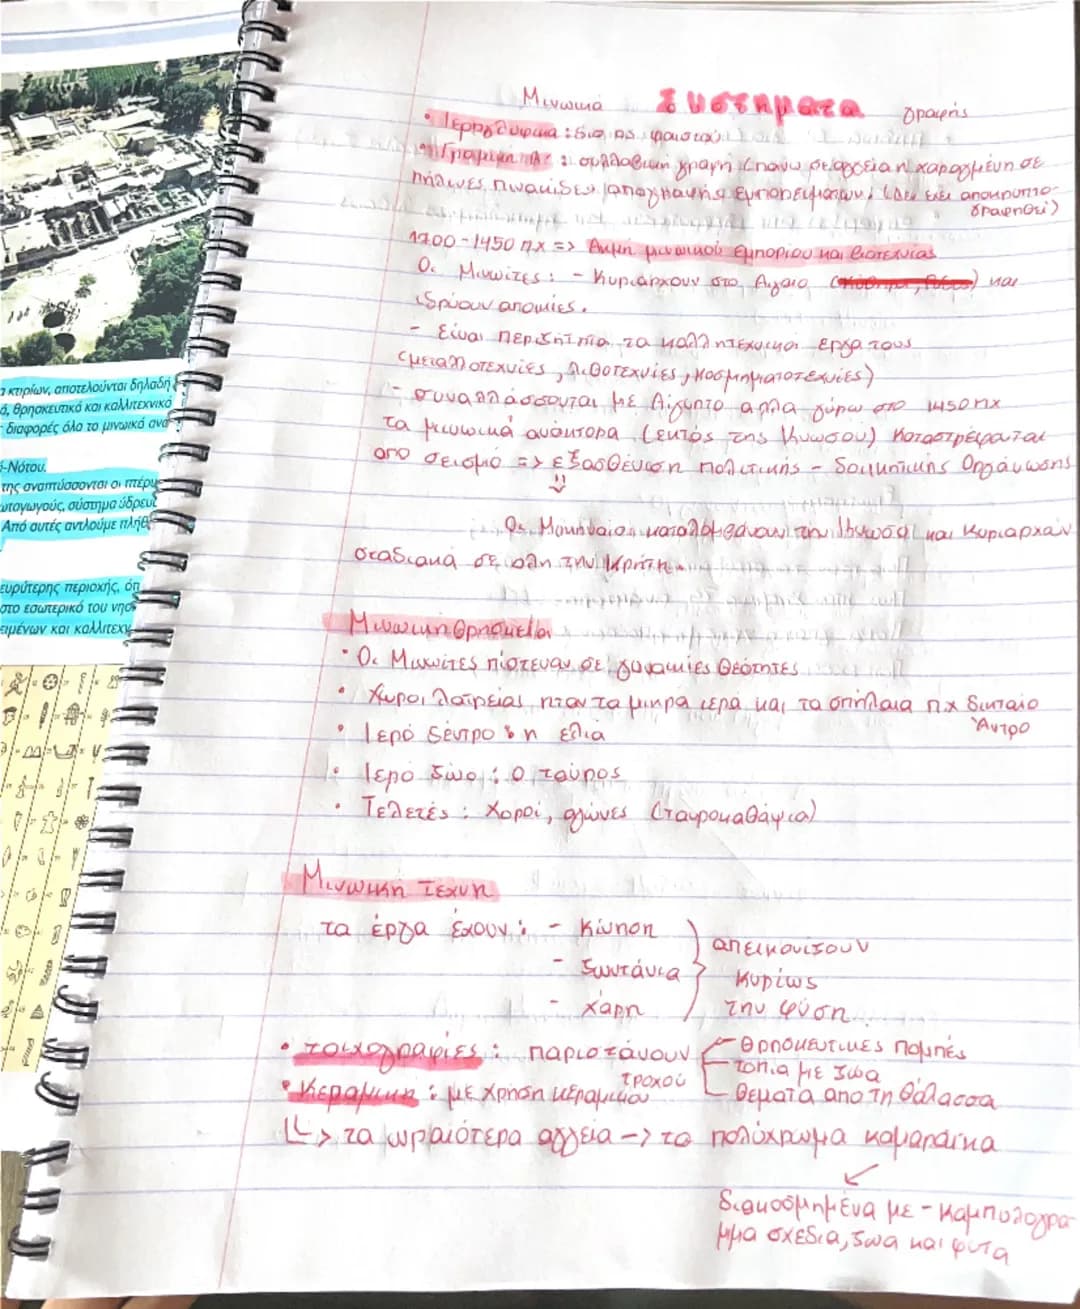 α κτιρίων, αποτελούνται δηλαδή
ά, θρησκευτικά και καλλιτεχνικό
διαφορές όλο το μινωικό ανά
-Νότου.
της αναπτύσσονται οι πτέρυ
ωταγωγούς, σύστημα ύδρευ
Από αυτές αντλούμε πληθ
ευρύτερης περιοχής, όπ
στο εσωτερικό του νησ
ειμένων και καλλιτεχν
Μινωικά συστηματα γραφής
• Ιερογλυφικα : δισ της φαιστού
• Γραμμική Α : συλλαβική γραφή (πάνω σε αγγεία η χαραγμένη σε
πήλινες πινακίδες απογραφής εμπορευματων. (Δεν εχει αποκρυπτο-
γραφηθεί)
1700-1450 πχ => Ακμή μινωικού εμπορίου και βιοτεχνίας
Οι Μινωίτες : - Κυριαρχουν στο Αιγαιο και
ιδρύουν αποικίες.
- είναι περιζήτητα τα καλλιτεχνικα εργα τους
(μεταλλοτεχνίες, λιθοτεχνίες, κοσμηματοτεχνίες)
- συναλλάσσονται με Αίγυπτο αλλα γύρω στο 1450 πχ
τα μινωικά ανάκτορα (εκτός της Κνωσού) καταστρέφονται
από σεισμό => εξασθένιση πολιτικής - διοικητικής Οργάνωσης
Οι Μυκηναίοι καταλαμβάνουν την Κνωσό και κυριαρχούν
σταδιακά σε όλη την Κρήτη.
Μινωική θρησκεία
• Οι Μινωίτες πίστευαν σε γυναικιές θεότητες
• Χώροι λατρείας ηταν τα μικρά ιερά και τα σπήλαια πχ δικταίο
Άντρο
• Ιερό δέντρο : η ελια
• Ιερό ζώο : ο ταύρος
• Τελετές : χοροί, αγώνες (ταυροκαθάψια)
Μινωική τέχνη
τα έργα έχουν : - Κίνηση
- ζωντάνια
- χάρη
απεικονίζουν
κυρίως
την φύση
• τοιχογραφίες : παριστάνουν
θρησκευτικες πομπές
τοπια με ζωα
θεματα απο τη θάλασσα
• Κεραμικη : με χρήση κεραμικου τροχού
τα ωραιότερα αγγεία -> τα πολύχρωμα καμαραϊκα
διακοσμημένα με - καμπυλογρα-
μμα σχεδια, ζωα και φυτα